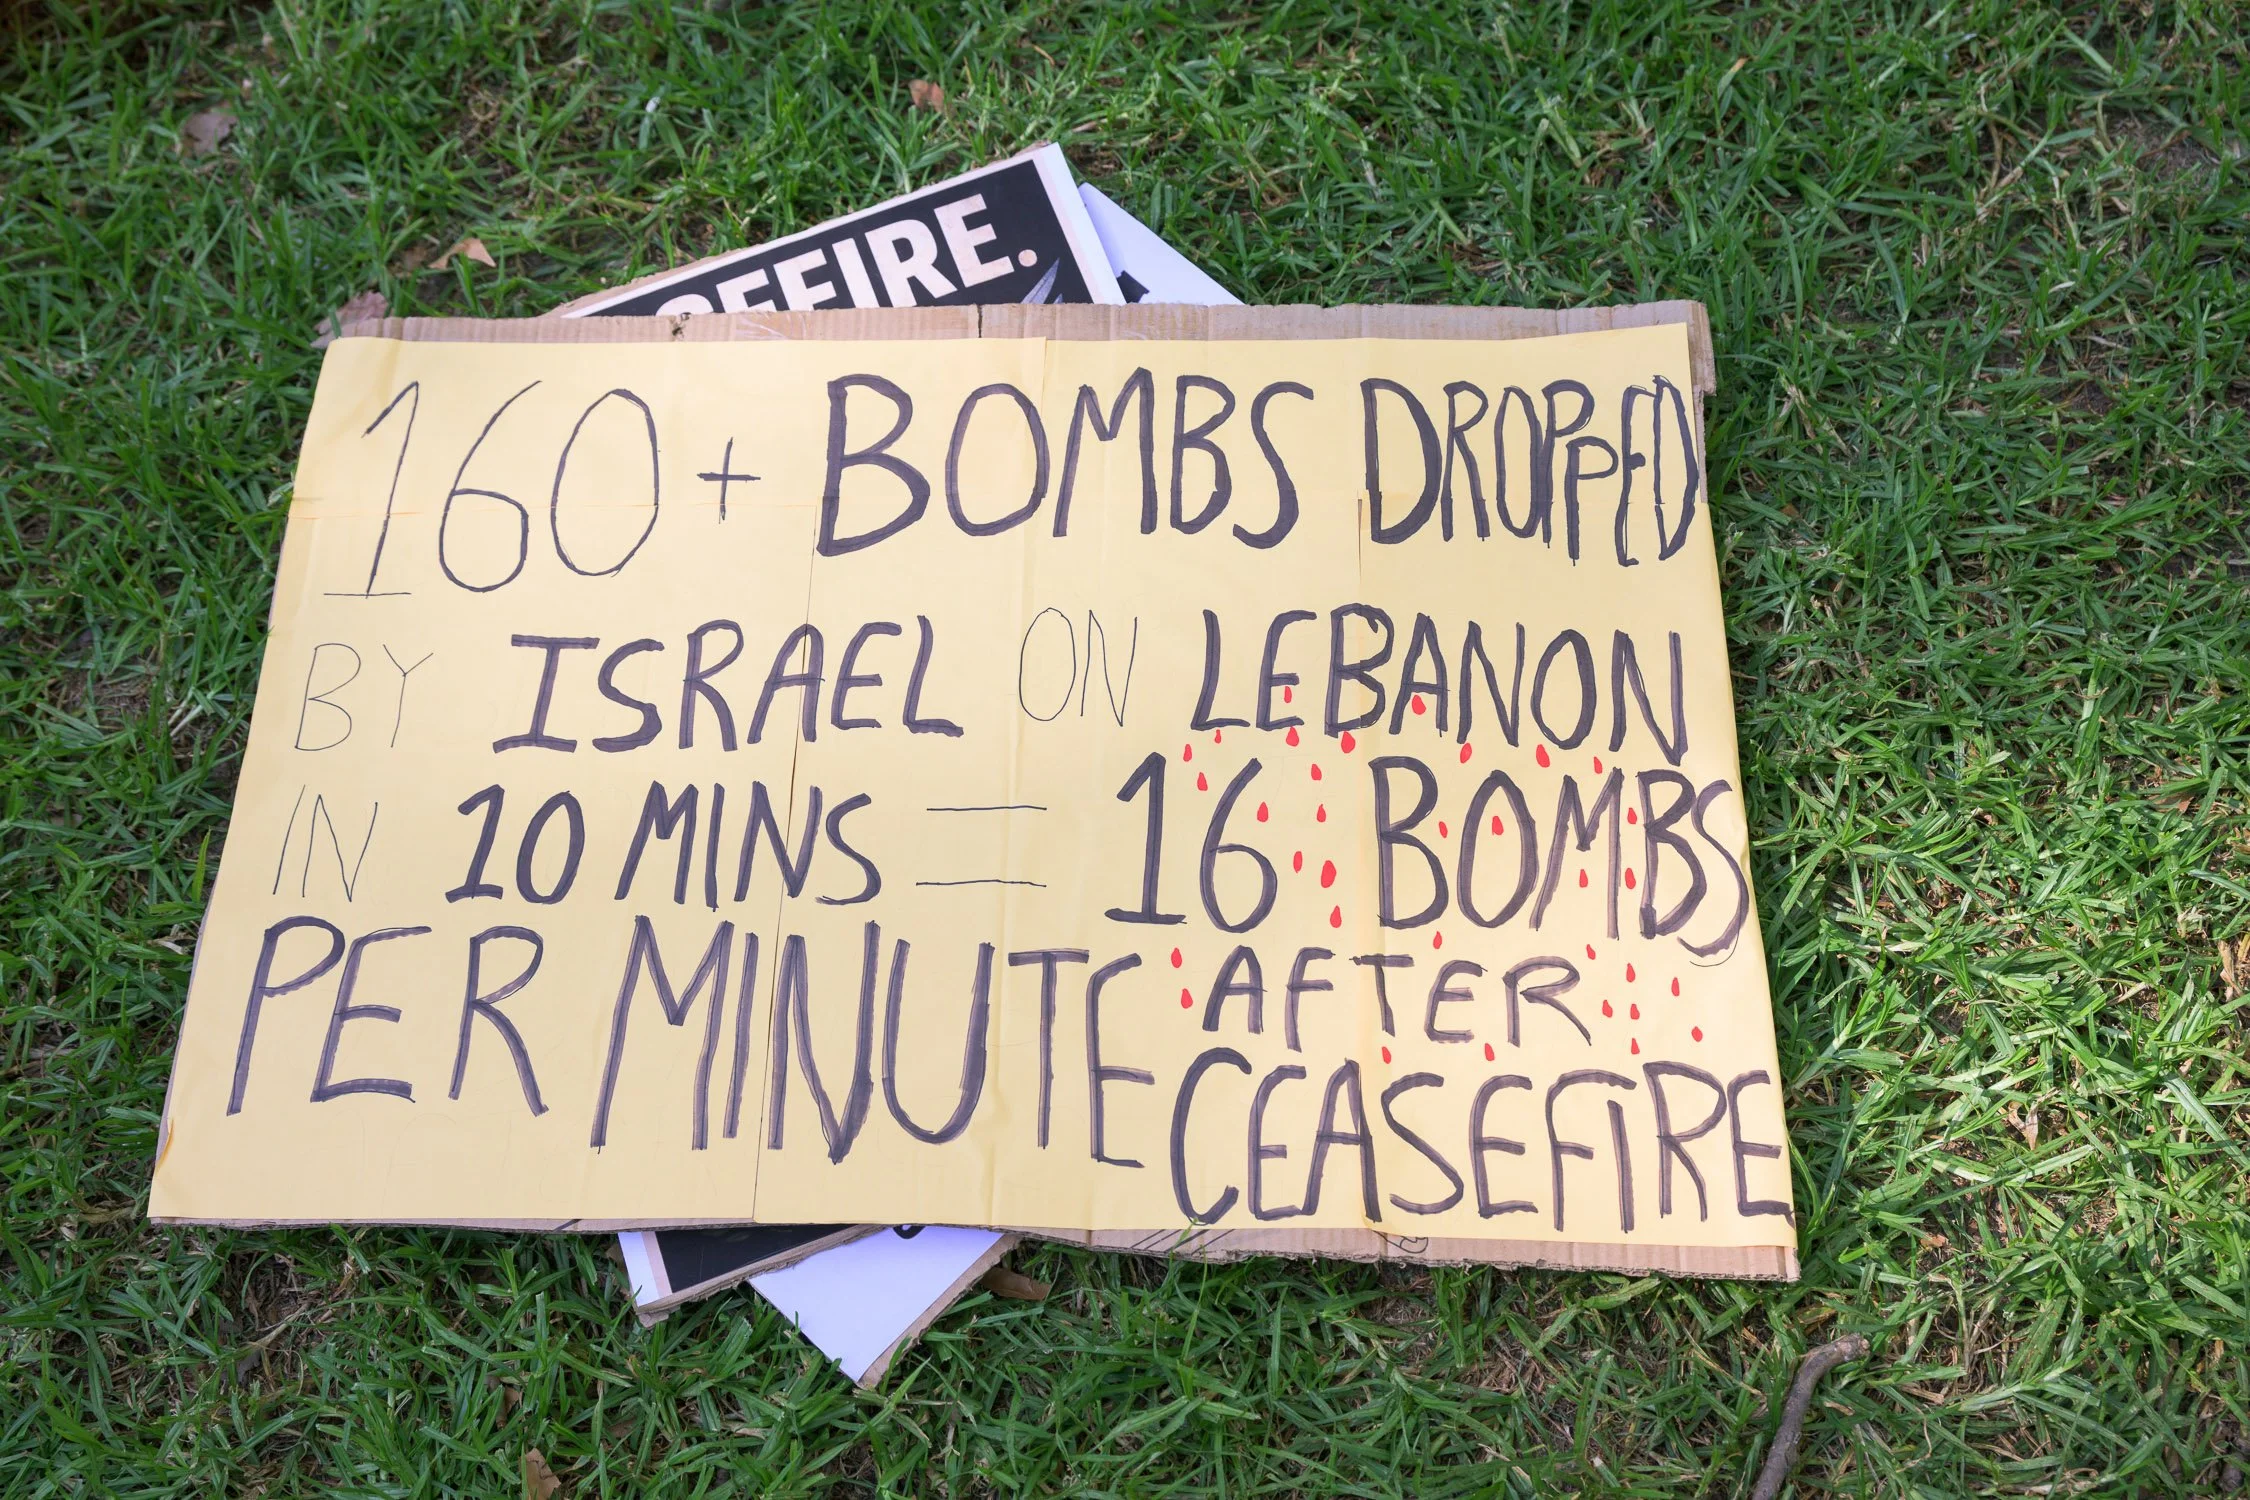 EFIRE.
160+ BOMBS DROPPED
BY ISRAEL ON LEBANON
IN 10 MINS = 16 BOMBS
PER MINUTE AFTER
CEASEFIRE